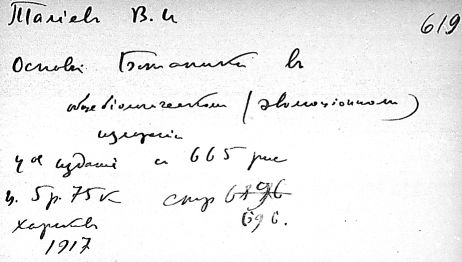 Талiев В. И
619
Основы Ботаники въ
общебiологическом (эволюцiонном)
изложенiи
4ое изданiе с 665 рис
ц. 5 р. 75 к стр 696
696.
Харьков
1917